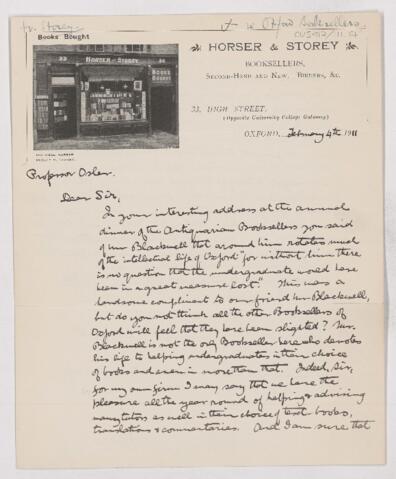 fr. Storey
re Oxford Booksellers
CUS417/11.64
Books Bought
33
HORSER & STOREY
33
BOOKS
BOUGHT
HORSER & STOREY
BOOKSELLERS,
SECOND-HAND AND NEW, BINDERS, &c.
33, HIGH STREET,
(Opposite University College Gateway)
OXFORD, February 4th 1911
Professor Osler.
Dear Sir,
In your interesting address at the annual
dinner of the Antiquarian Booksellers you said
of Mr Blackwell that around him rotates much
of the intellectual life of Oxford "for without him there
is no question that the undergraduate would have
been in a great measure lost." This was a
handsome compliment to our friend Mr Blackwell,
but do you not think all the other Booksellers of
Oxford will feel that they have been slighted? Mr.
Blackwell is not the only Bookseller here who devotes
his life to helping undergraduates in their choice
of books and even in more than that. Indeed, Sir,
for my own firm I may say that we have the
pleasure all the year round of helping & advising
many tutors as well in their choice of text books,
translations & commentaries. And I am sure that